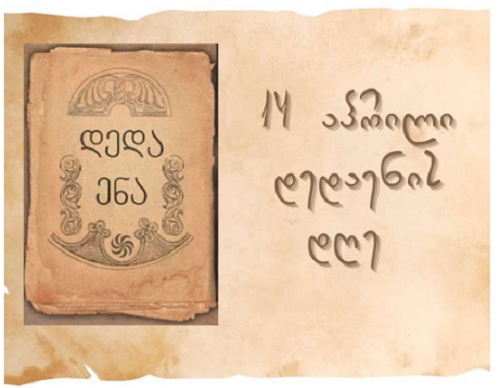 დედა
ენა
14 აპრილი
დედაენის
დღე